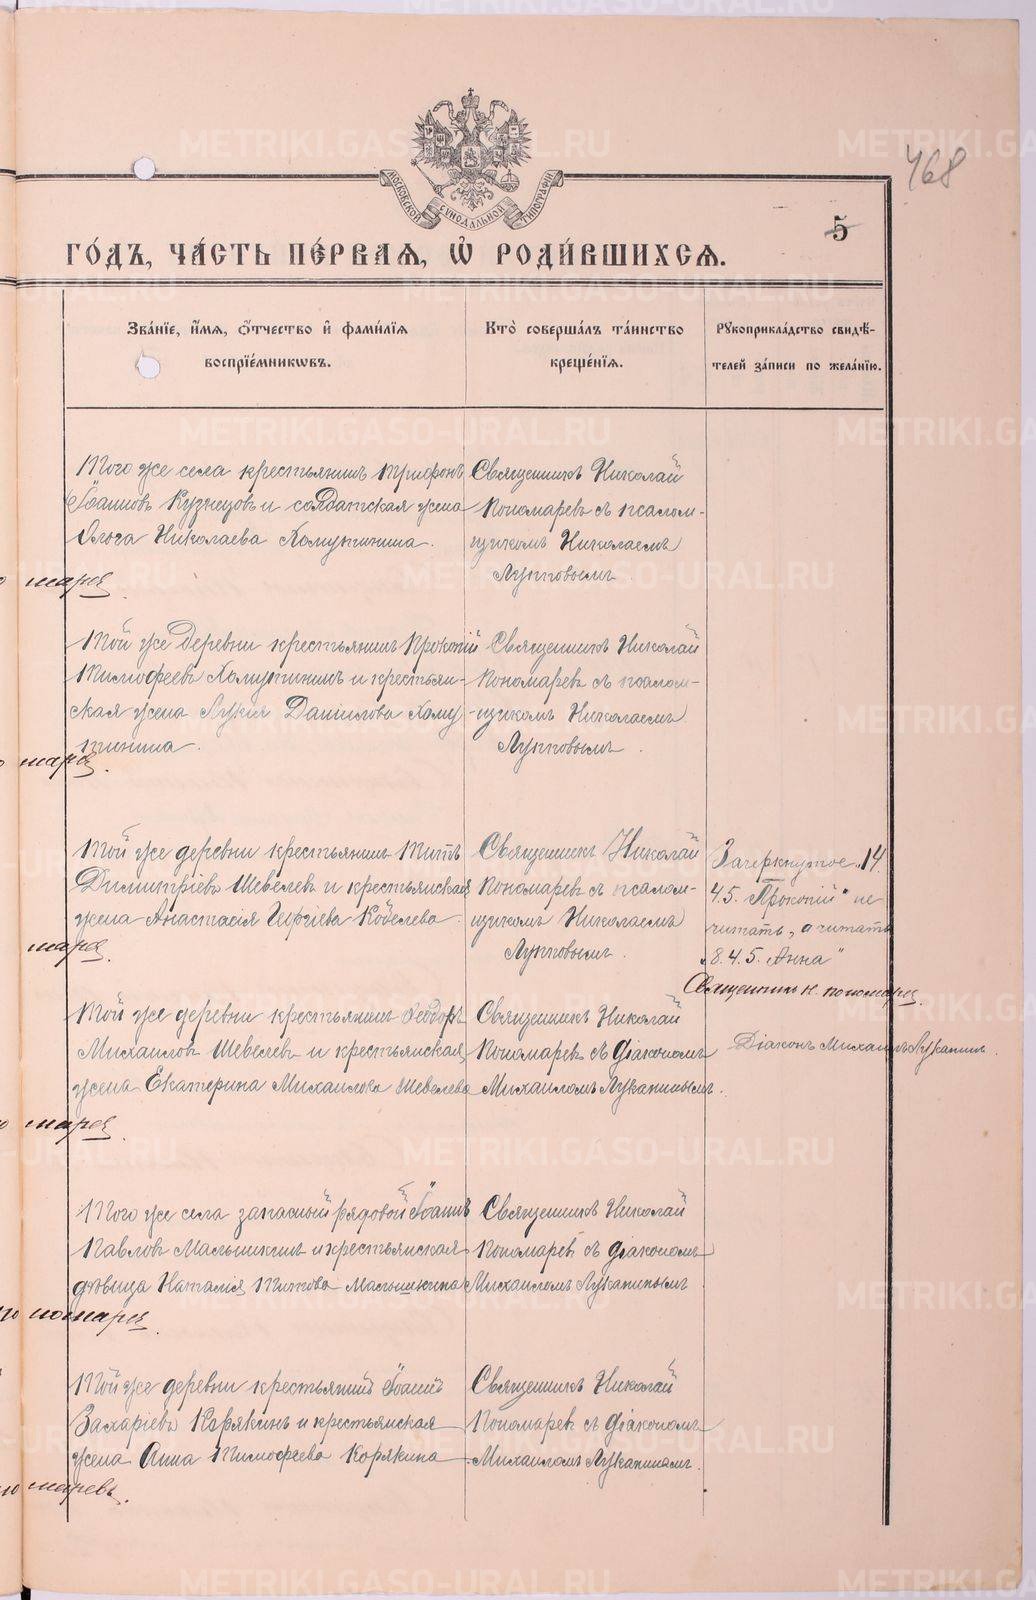 METRIKI.GASO-URAL.RU
468
МОСКОВСКОЙ СѴНОДАЛЬНОЙ ТИПОГРАФІИ
5
ГО́ДЪ, ЧА́СТЬ ПЕ́РВАѦ, Ѽ РОДИ́ВШИХСѦ.
Зва́нїе, и҆́мѧ, ѻ҆́тчество и҆ фами́лїѧ
воспрїе́мникѡвъ.
Кто̀ соверша́лъ та́инство
креще́нїѧ.
Рꙋкоприкла́дство свидѣ́-
телей за́писи по жела́нїю.
Того же села крестьянинъ Трифонъ
Іоанновъ Кузнецовъ и солдатская жена
Ольга Николаева Хомутинина.
Священникъ Николай
Пономаревъ съ псалом-
щикомъ Николаемъ
Лупповымъ.
Той же деревни крестьянинъ Прокопій
Тимофеевъ Хомутининъ и крестьян-
ская жена Лукія Даніилова Хому
тинина.
Священникъ Николай
Пономаревъ съ псалом-
-щикомъ Николаемъ
Лупповымъ.
Той же деревни крестьянинъ Титъ
Димитріевъ Шевелевъ и крестьянская
жена Анастасія Гергіева Кобелева.
Священникъ Николай
Пономаревъ съ псалом-
щикомъ Николаемъ
Лупповымъ.
Зачеркнутое „14.
4.5. Прокопій" не
читать, а читать
„8.4.5. Анна"
Священникъ Н. Пономарев.
Діаконъ Михаилъ Луканинъ.
Той же деревни крестьянинъ Ѳеодоръ
Михаиловъ Шевелевъ и крестьянская
жена Екатерина Михаилова Шевелева
Священникъ Николай
Пономаревъ съ діакономъ
Михаиломъ Луканинымъ.
Того же села запасный рядовой Іоаннъ
Павловъ Малышкинъ и крестьянская
дѣвица Наталія Титова Малышкина
Священникъ Николай
Пономаревъ съ діакономъ
Михаиломъ Луканинымъ
Той же деревни крестьянинъ Іоаннъ
Захаріевъ Корякинъ и крестьянская
жена Анна Тимофеева Корякина
Священникъ Николай
Пономаревъ съ діакономъ
Михаиломъ Луканинымъ.